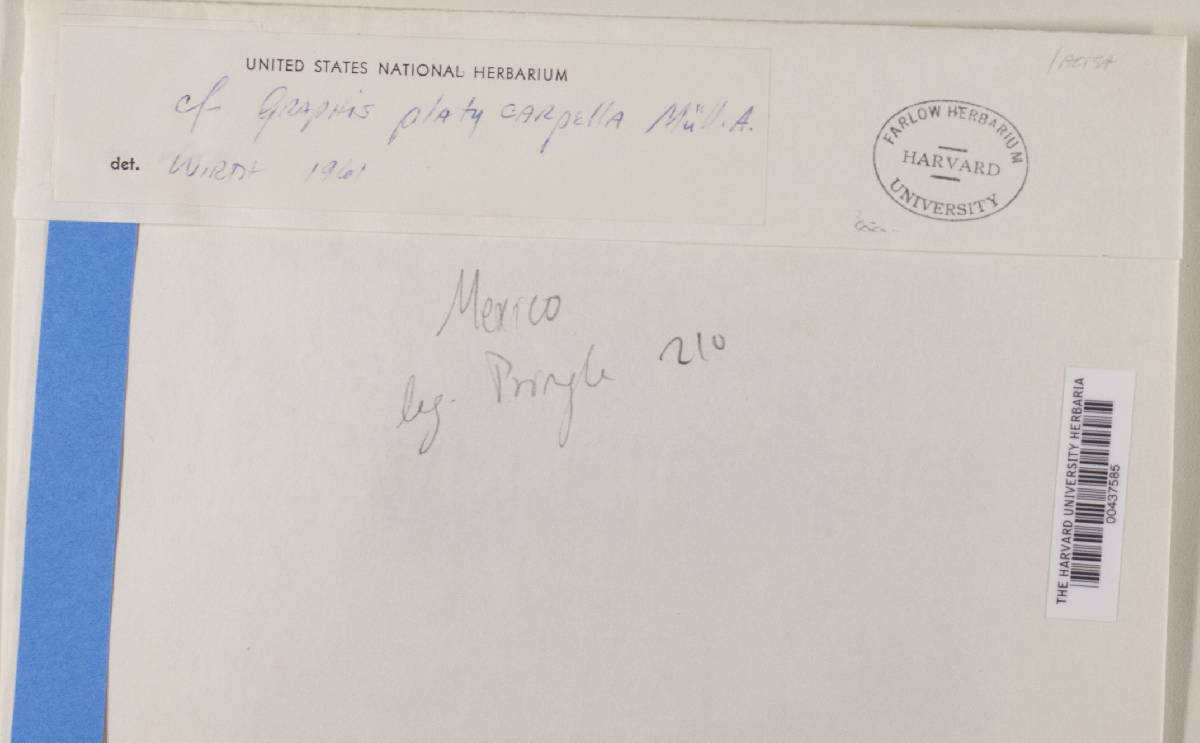 UNITED STATES NATIONAL HERBARIUM
cf. Graphis platycarpella Müll. A.
det. Wirth 1961
FARLOW HERBARIUM
HARVARD
UNIVERSITY
Mexico
leg. Pringle 210
THE HARVARD UNIVERSITY HERBARIA
00437585